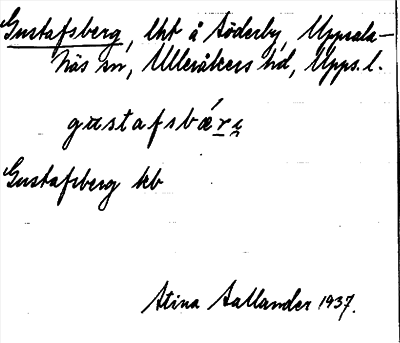 Gustafsberg, lht å Söderby, Uppsala-
Näs sn, Ulleråkers hd, Upps. l.
gustafsbæri̯
Gustafsberg kb
Stina Aallander 1937.